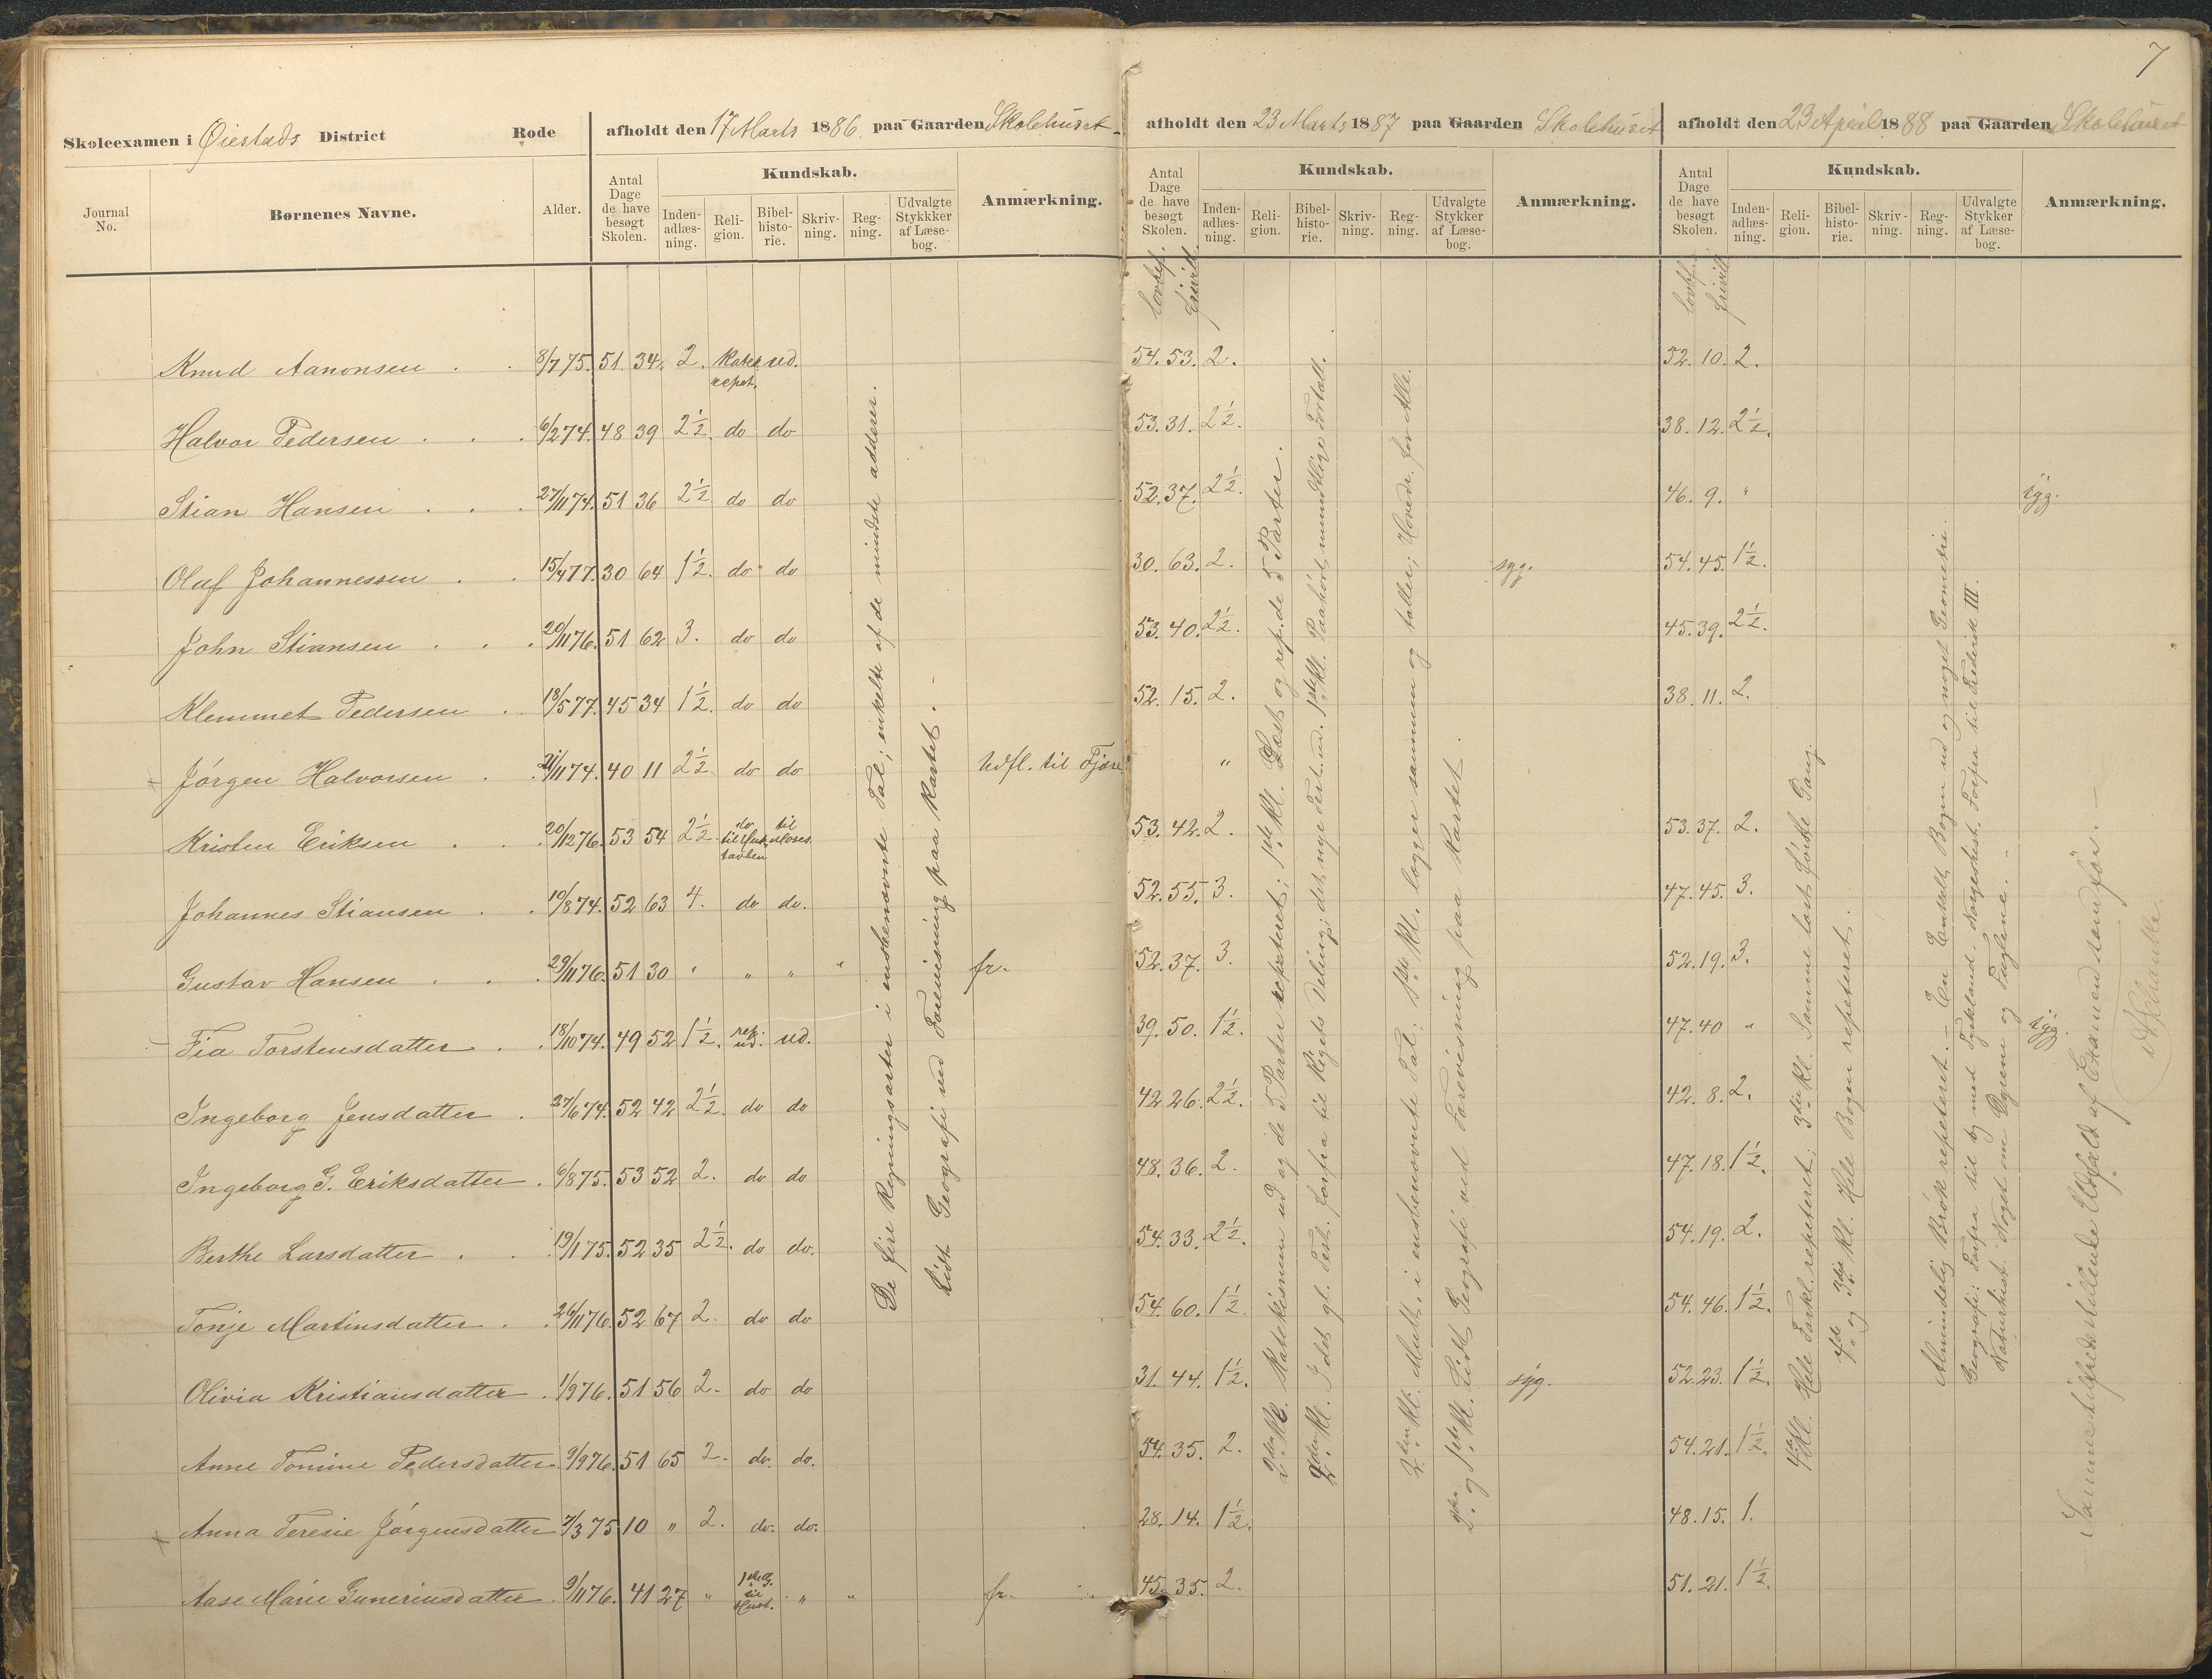 7
Skoleexamen i Øiestads District Rode
afholdt den 17 Marts 1886. paa Gaarden Skolehuset
afholdt den 23 Marts 1887 paa Gaarden Skolehuset
afholdt den 23 April 1888 paa Gaarden Skolehuset
Journal No. Børnenes Navne. Alder. Antal Dage de have besøgt Skolen. Kundskab. Inden-adlæs-ning. Reli-gion. Bibel-histo-rie. Skriv-ning. Reg-ning. Udvalgte Stykkker af Læse-bog. Anmærkning.
Antal Dage de have besøgt Skolen. Kundskab. Inden-adlæs-ning. Reli-gion. Bibel-histo-rie. Skriv-ning. Reg-ning. Udvalgte Stykker af Læse-bog. Anmærkning.
Antal Dage de have besøgt Skolen. Kundskab. Inden-adlæs-ning. Reli-gion. Bibel-histo-rie. Skriv-ning. Reg-ning. Udvalgte Stykker af Læse-bog. Anmærkning.
lovbef. frivill. lovbef. frivill.
Knud Aanonsen . . 8/7 75. 51 34 2. Katek. repet. ud. 54. 53. 2. 52. 10. 2.
Halvor Pedersen . . . 6/2 74. 48 39 2½. do do 53. 31. 2½. 38. 12. 2½.
Stian Hansen . . . 27/11 74. 51 36 2½ do do 52. 37. 2½. 46. 9. " syg.
Olaf Johannessen . . 15/4 77. 30 64 1½. do do 30. 63. 2. syg. 54. 45. 1½.
John Stiansen . . . 20/11 76. 51 62 3. do do 53. 40. 2½. 45. 39. 2½.
Klemmet Pedersen . 18/5 77. 45 34 1½. do do 52. 15. 2. 38. 11. 2.
+ Jørgen Halvorsen . . 21/11 74. 40 11 2½ do do Udfl. til Fjære "
Kristen Eriksen . . . 20/12 76. 53 54 2½. do til Hustavlen til Moses. 53. 42. 2. 53. 37. 2.
Johannes Stiansen . . 10/8 74. 52 63 4. do do. 52. 55. 3. 47. 45. 3.
Gustav Hansen . . . 29/11 76. 51 30 " " " " fr. 52. 37. 3. 52. 19. 3.
Fia Torstensdatter . . 18/10 74. 49 52 1½. rep. ud. ud. 39. 50. 1½. 47. 40 " syg.
Ingeborg Jensdatter . 27/6 74. 52 42 2½. do do 42 26. 2½. 42. 8. 2.
Ingeborg G. Eriksdatter . 6/8 75. 53 52 2. do do 48. 36. 2. 47. 18. 1½.
Berthe Larsdatter . . 19/1 75. 52 35 2½. do do. 54. 33. 2½. 54. 19. 2.
Tonje Martinsdatter . . 26/11 76. 52 67 2. do do 54. 60. 1½. 54. 46. 1½.
Olivia Kristiansdatter . 1/9 76. 51 56 2. do do 31. 44. 1½. syg. 52. 23. 1½.
Anne Tomine Pedersdatter 9/9 76. 51 65 2. do. do. 54. 35. 2. 54. 21. 1½.
+ Anna Teresie Jørgensdatter 7/3 75 10 " 2. do. do. 28. 14. 1½. 48. 15. 1.
Aase Marie Guneriusdatter . 9/11 76. 41 27 " 1ste G. til Hust. " " fr. 45. 35. 2. 51. 21. 1½.
De fire Regningsarter i ensbenævnte Tal; enkelte af de mindste adderer.
Lidt Geografi ved Forevisning paa Kartet.
2den Kl. Katekismen ud og de 5 Parter repeteret; 1ste Kl. Læst og rep. de 5 Parter.
2den Kl. I det gl. Test. forfra til Rigets Deling; det nye Test. ud. 1ste Kl. Paahørt mundtlige Fortæll.
2den Kl. Mult. i ensbenævnte Tal; 1ste Kl. lægger sammen og tæller; Hovedr. for Alle.
2den og 1ste Kl. Lidt Geografi ved Forevisning paa Kartet.
4de Kl. Hele Forkl. repeteret; 3die Kl. Samme læst første Gang.
4de og 3die Kl. Hele Bogen repeteret.
Almindelig Brøk repeteret. – En Enkelt Bogen ud og noget Geometrie.
Geografi: Forfra til og med Tyskland. Norgeshist. Forfra til Frederik III.
Naturhist. Noget om Dyrene og Fuglene.
Samme tilfredsstillende Udfald af Examen som før.